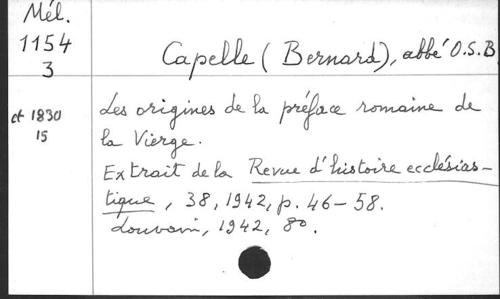 Mél.
1154
3
Capelle (Bernard), abbé O.S.B.
et 1830
15
Les origines de la préface romaine de
la Vierge.
Extrait de la Revue d'histoire ecclésias-
tique, 38, 1942, p. 46-58.
Louvain, 1942, 8°.